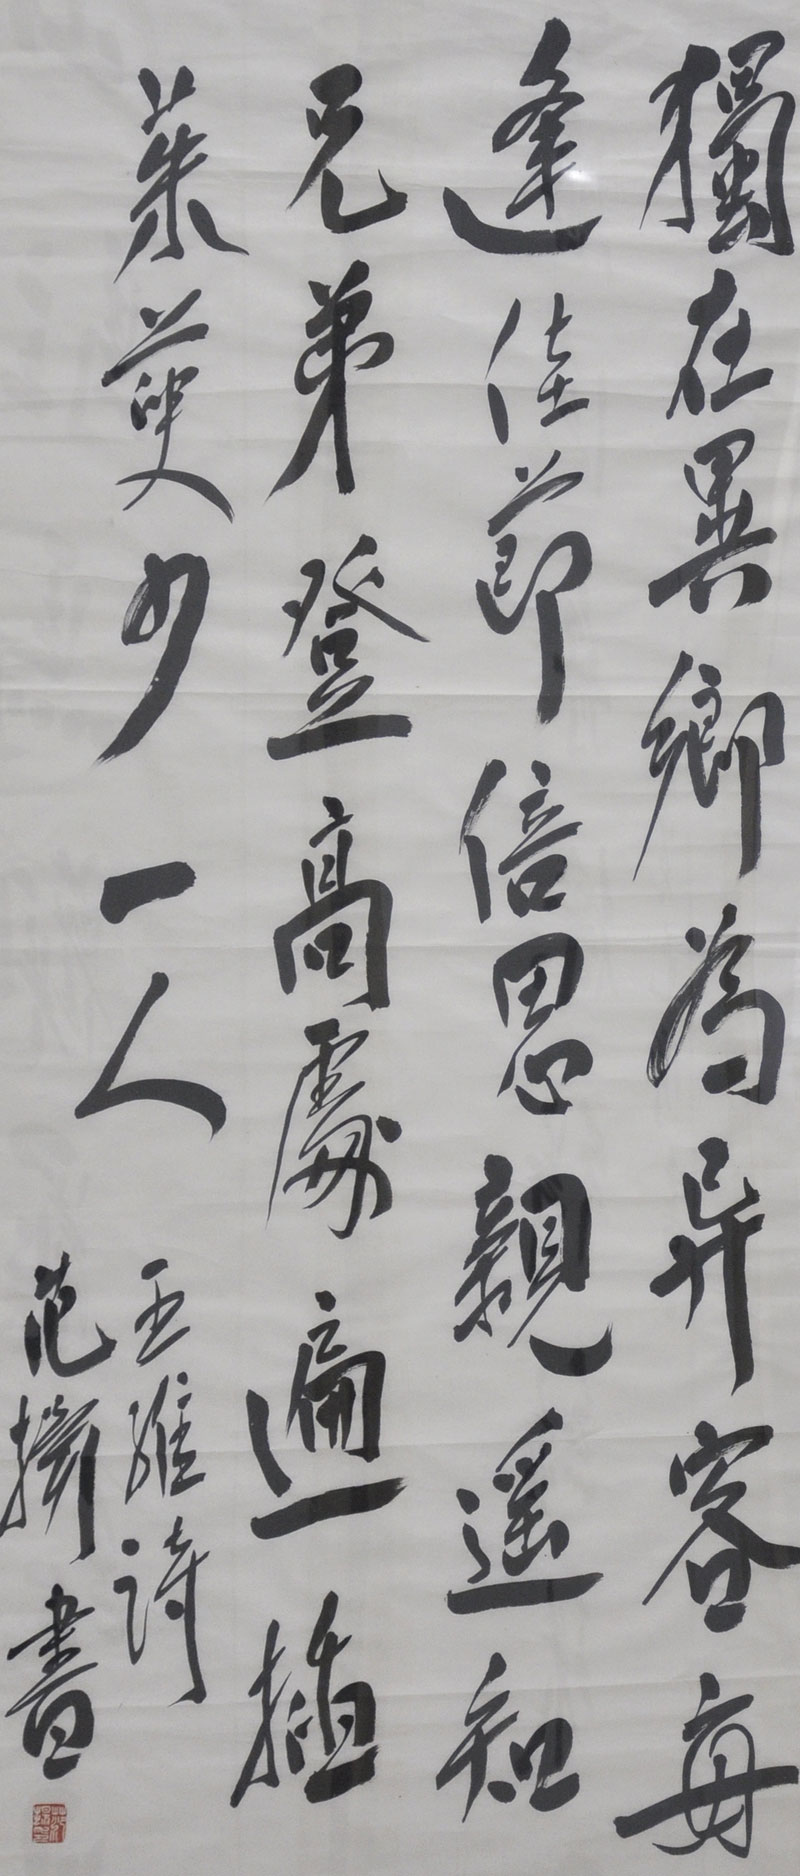 獨在異鄉為异客每
逢佳節倍思親遥知
兄弟登高處遍插
茱萸少一人
王維詩
范書